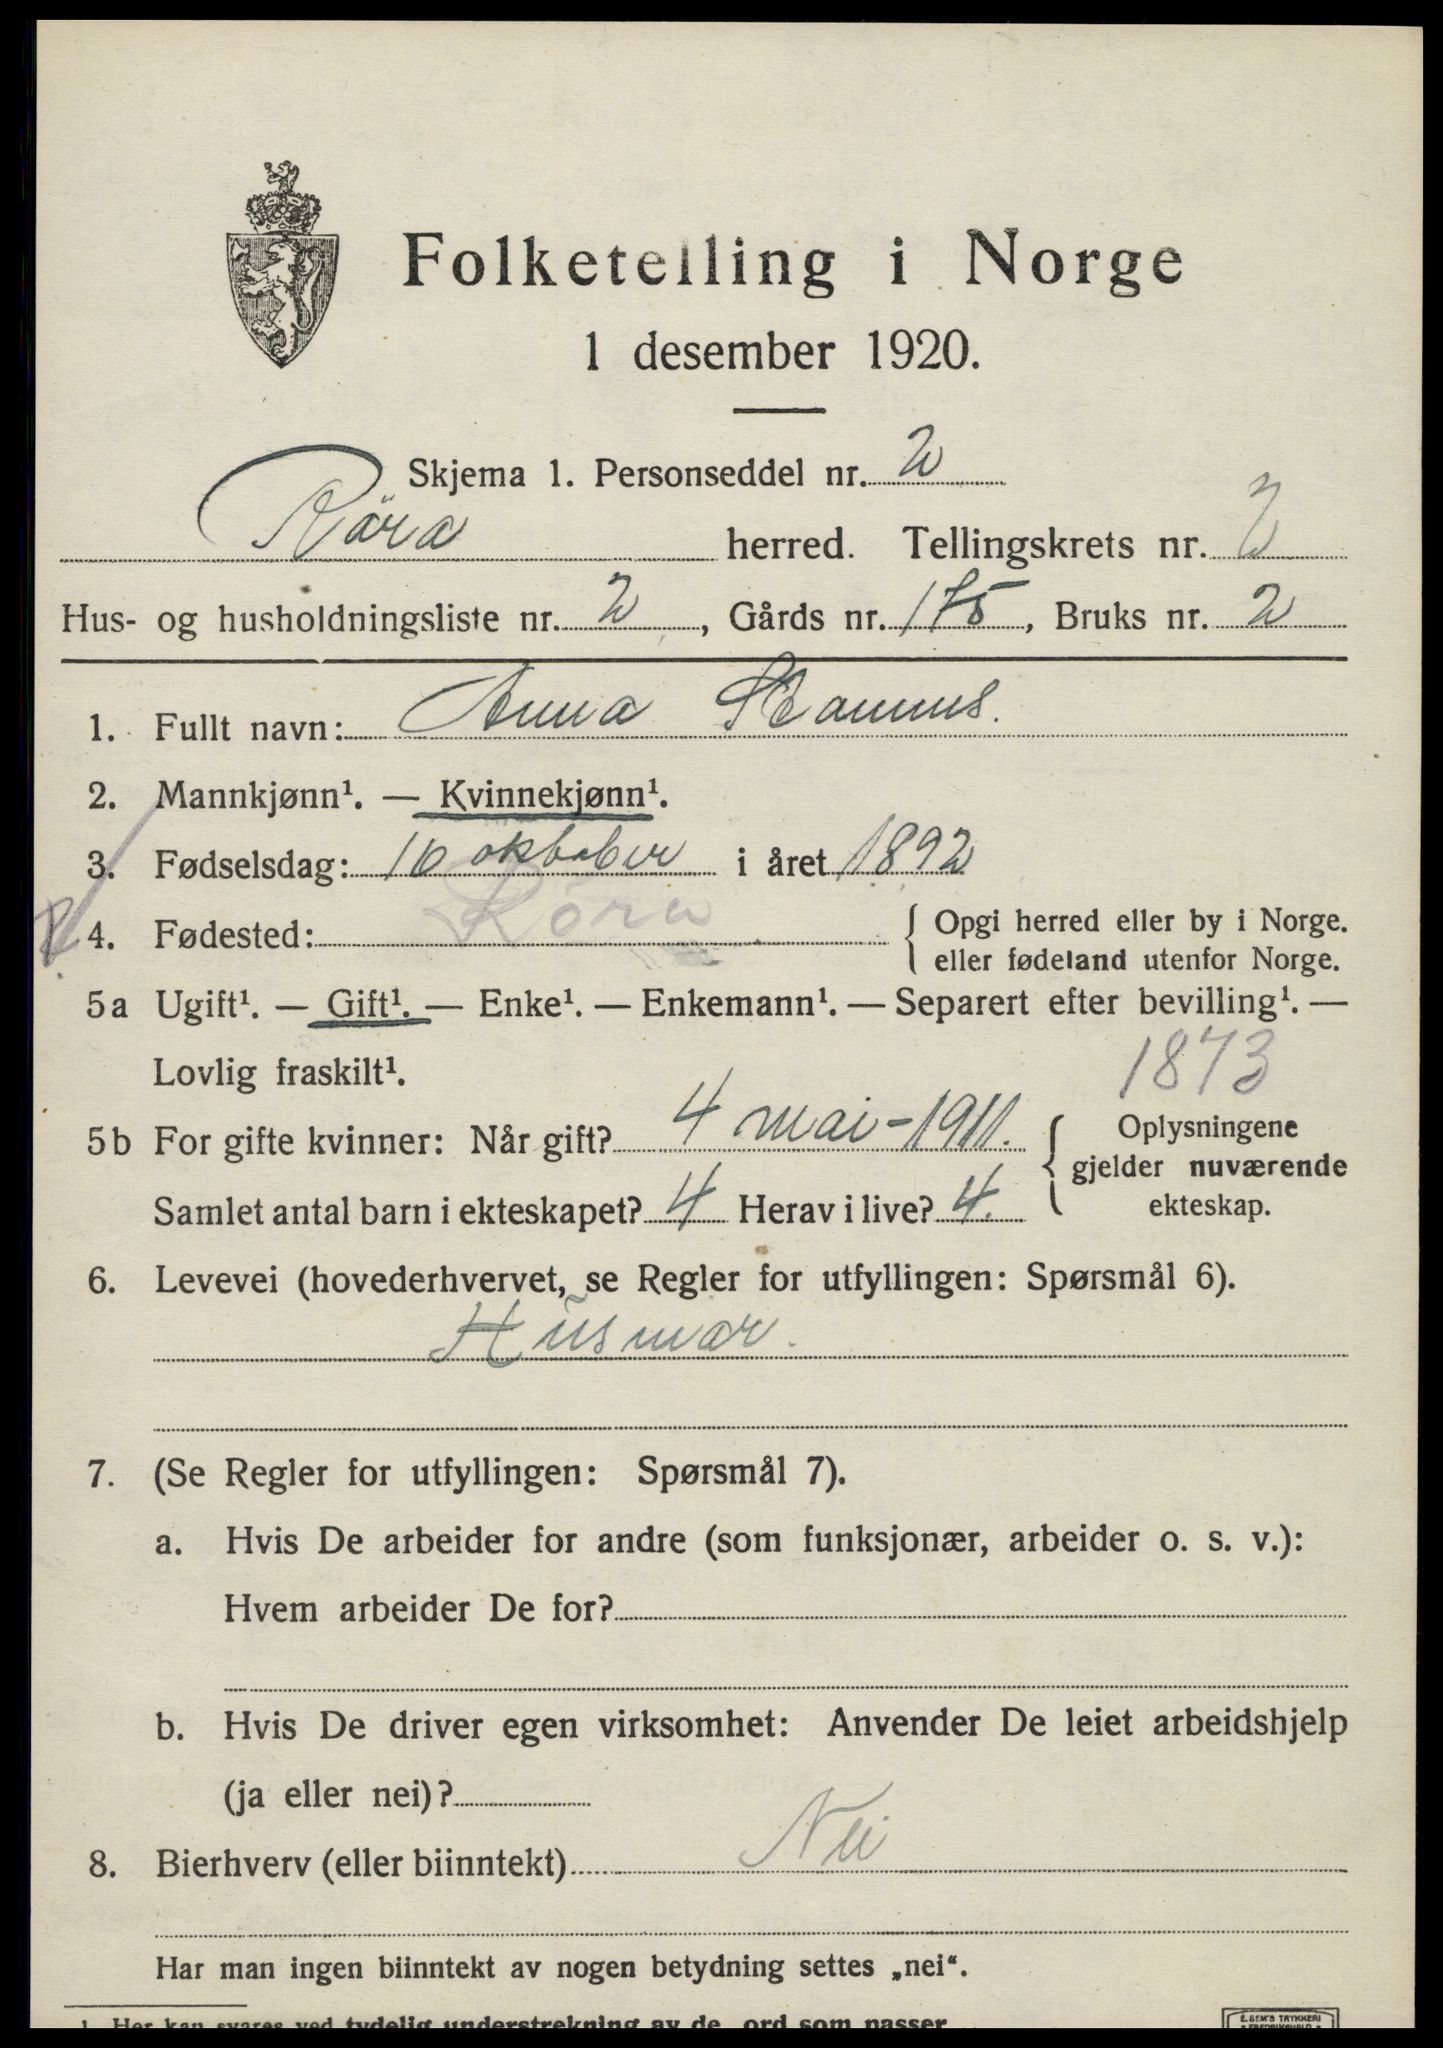 Folketelling i Norge
1 desember 1920.
Skjema 1. Personseddel nr. 2
Röra herred. Tellingskrets nr. 2
Hus- og husholdningsliste nr. 2, Gårds nr. 175, Bruks nr. 2
1. Fullt navn: Anna Hamnes.
2. Mannkjønn¹. — Kvinnekjønn¹.
3. Fødselsdag: 10 oktober i året 1892
4. Fødested: Röra { Opgi herred eller by i Norge.
eller fødeland utenfor Norge.
5a Ugift¹. — Gift¹. — Enke¹. — Enkemann¹. — Separert efter bevilling¹. —
Lovlig fraskilt¹.
1873
5b For gifte kvinner: Når gift? 4 mai - 1911. { Oplysningene
gjelder nuværende
Samlet antal barn i ekteskapet? 4 Herav i live? 4. ekteskap.
6. Levevei (hovederhvervet, se Regler for utfyllingen: Spørsmål 6).
Husmor.
7. (Se Regler for utfyllingen: Spørsmål 7).
a. Hvis De arbeider for andre (som funksjonær, arbeider o. s. v.):
Hvem arbeider De for?
b. Hvis De driver egen virksomhet: Anvender De leiet arbeidshjelp
(ja eller nei)?
8. Bierhverv (eller biinntekt) Nei
Har man ingen biinntekt av nogen betydning settes „nei“.
1 Her kan svares ved tydelig understrekning av de ord som passer
E. SEM'S TRYKKERI
FREDRIKSHALD